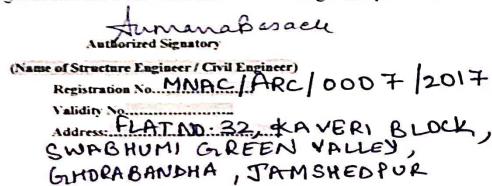 Authorized Signatory
(Name of Structure Engineer / Civil Engineer)
Registration No. MNAC/ARC/0007/2017
Validity No.
Address: FLAT NO. 32, KAVERI BLOCK,
SWABHUMI GREEN VALLEY,
GHORABANDHA, JAMSHEDPUR